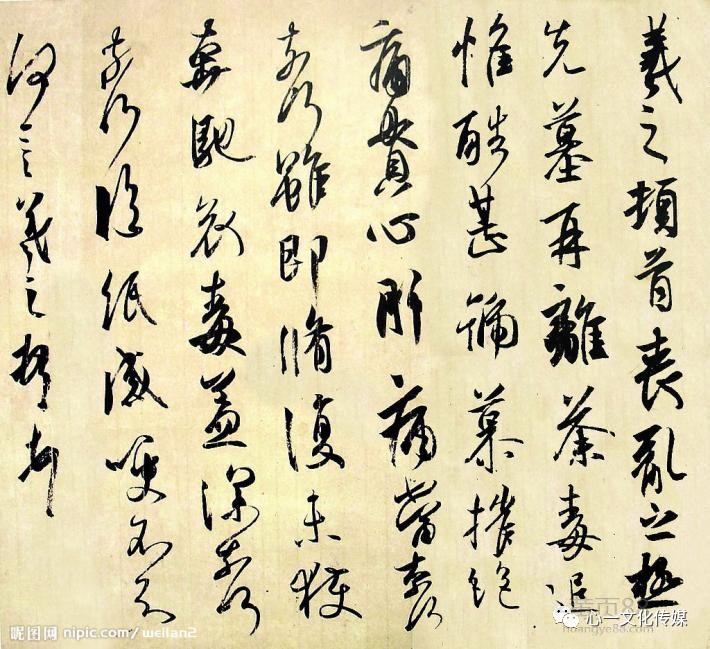 羲之頓首喪亂之極
先墓再離荼毒追
惟酷甚號慕摧絕
痛貫心肝痛當奈何
奈何雖即脩復未獲
奔馳哀毒益深奈何
奈何臨紙感哽不知
何言羲之頓首
昵图网 nipic.com/ weilan2
心一文化传媒
huangye88.com